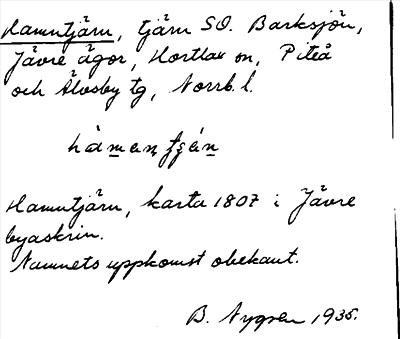 Hamntjärn, tjärn SO. Barksjön,
Jävre ägor, Hortlax sn, Piteå
och Älvsby tg, Norrb. l.
Hamntjärn, karta 1807 i Jävre
byaskrin.
Namnets uppkomst obekant.
B. Nygren 1935.